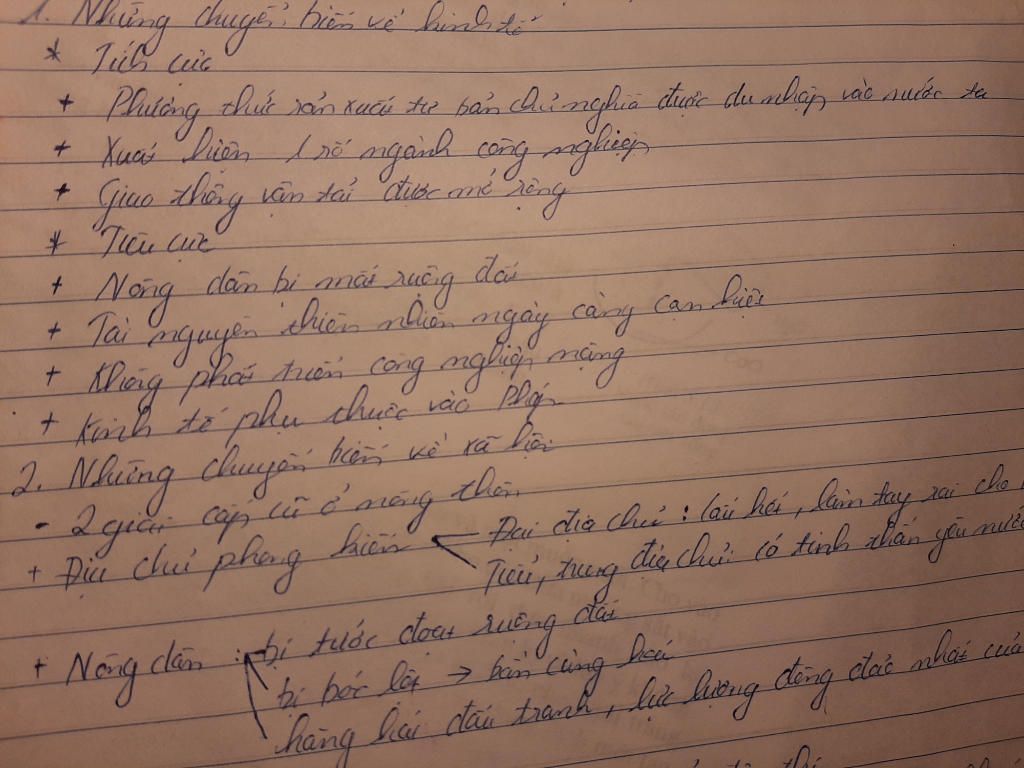 1. Những chuyển biến về kinh tế
* Tích cực
+ Phương thức sản xuất tư bản chủ nghĩa được du nhập vào nước ta
+ Xuất hiện 1 số ngành công nghiệp
+ Giao thông vận tải được mở rộng
* Tiêu cực
+ Nông dân bị mất ruộng đất
+ Tài nguyên thiên nhiên ngày càng cạn kiệt
+ Không phát triển công nghiệp nặng
+ Kinh tế phụ thuộc vào Pháp
2. Những chuyển biến về xã hội
- 2 giai cấp cũ ở nông thôn
+ Địa chủ phong kiến Đại địa chủ: câu kết, làm tay sai cho
Tiểu, trung địa chủ: có tinh thần yêu nước
+ Nông dân: bị tước đoạt ruộng đất
bị bóc lột → bần cùng hóa
hăng hái đấu tranh, lực lượng đông đảo nhất của